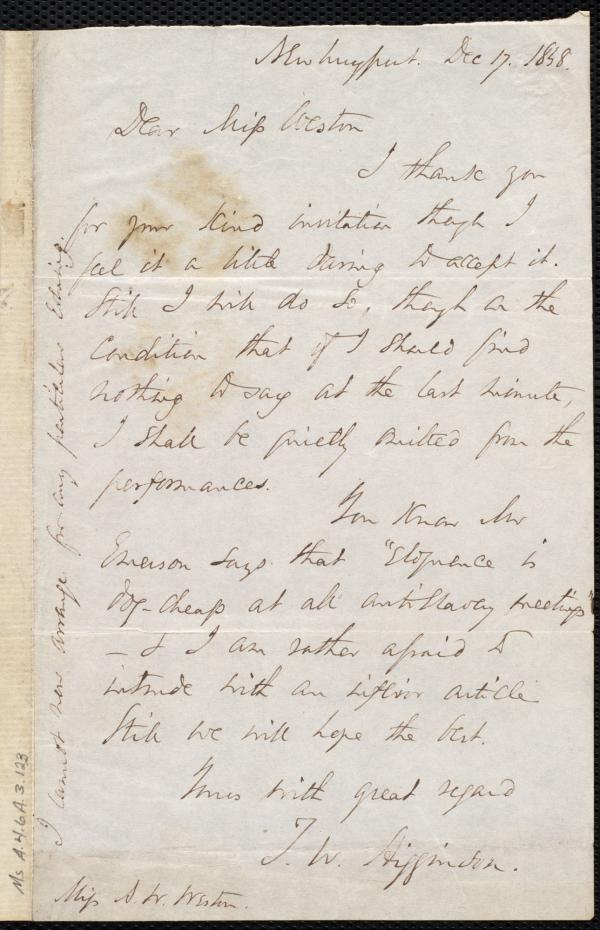 Newburyport. Dec 17. 1848.
Dear Miss Weston
I thank you
for your kind invitation though I
feel it a little daring to accept it.
Still I will do so, though on the
condition that if I should find
nothing to say at the last minute,
I shall be quietly omitted from the
performances.
You know Mr
Emerson says that "Eloquence is
dog-cheap at all antislavery meetings"
- & I am rather afraid to
intrude with an inferior article
Still we will hope the best.
Yours with great regard
T. W. Higginson.
Miss A. W. Weston.
I cannot now arrange for any particular Evening.
Ms A.4.6A.3.123